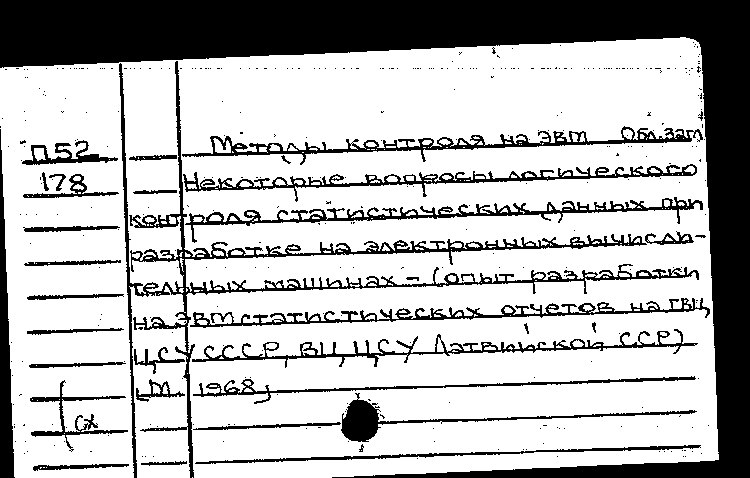 П52 Методы контроля на ЭВМ Обл.загл
178 Некоторые вопросы логического
контроля статистических данных при
разработке на электронных вычисли-
тельных машинах - (опыт разработки
на ЭВМ статистических отчетов на ГВЦ
ЦСУ СССР, ВЦ ЦСУ Латвийской ССР)
М. 1968
сх